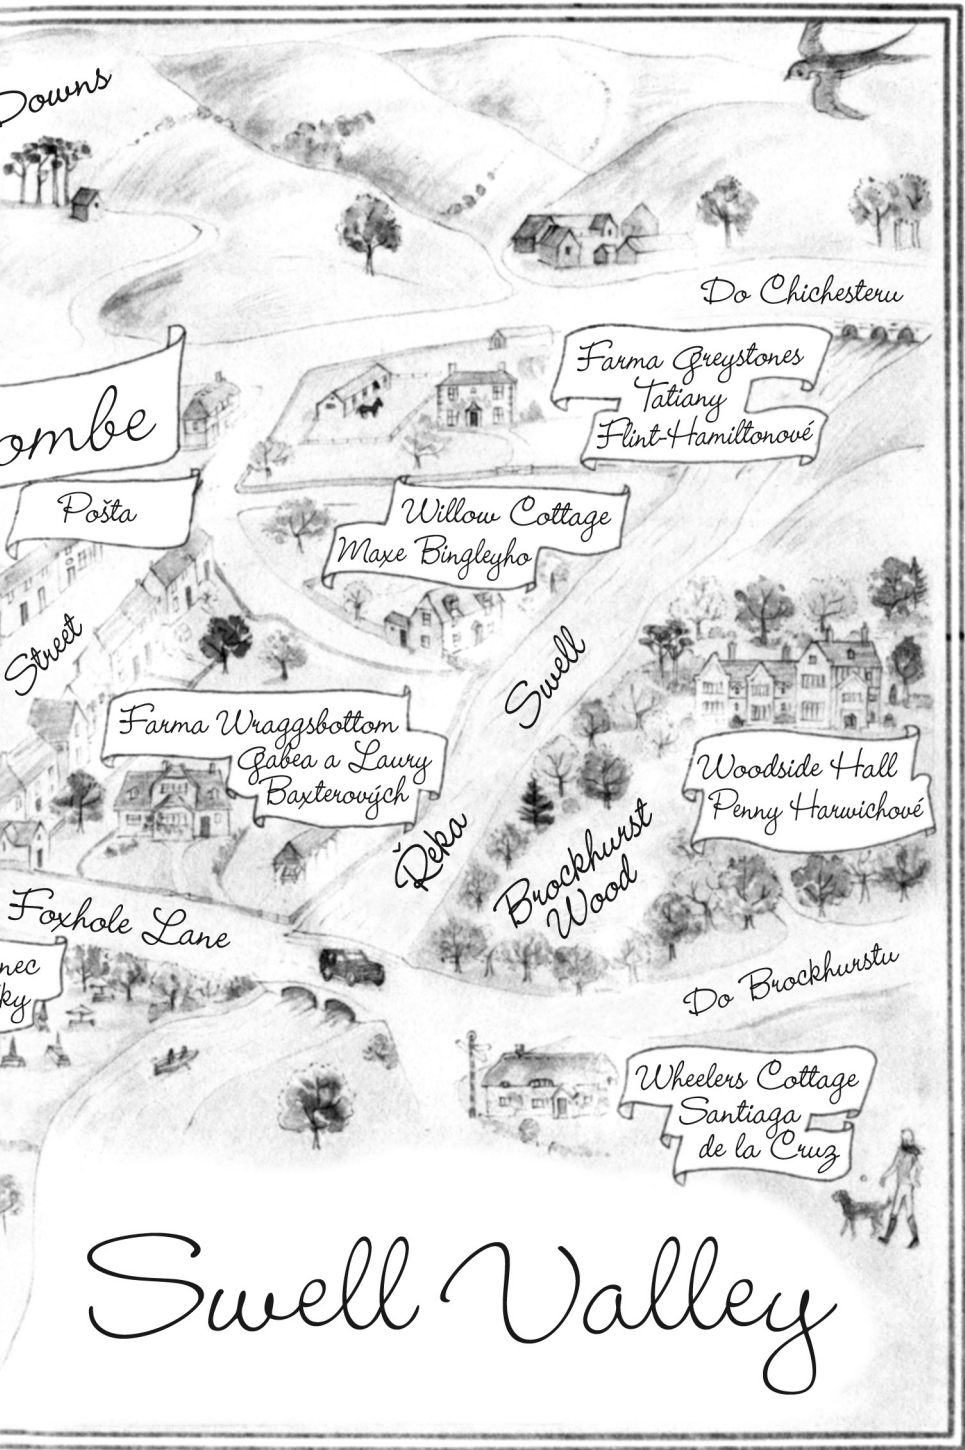 Downs
Do Chichesteru
Farma Greystones
Tatiany
Flint-Hamiltonové
ombe
Pošta
Willow Cottage
Maxe Bingleyho
Street
Swell
Farma Wraggsbottom
Gabea a Laury
Baxterových
Woodside Hall
Penny Harwichové
Řeka
Brockhurst
Wood
Foxhole Lane
nec
ky
Do Brockhurstu
Wheelers Cottage
Santiaga
de la Cruz
Swell Valley